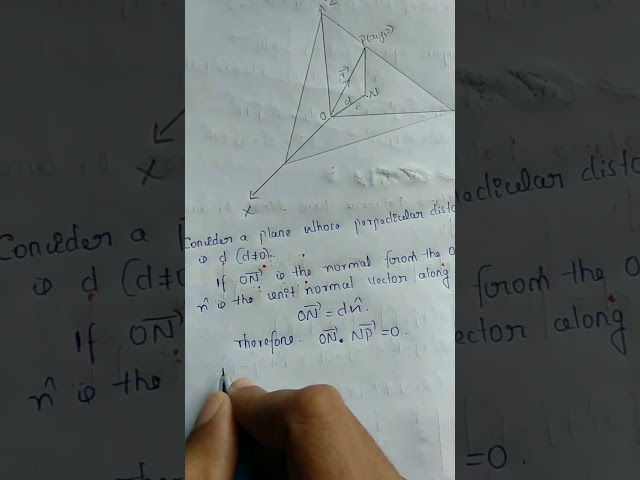 Z
P(x,y,z)
r
O
d
N
n
X
Consider a plane whose perpedicular dista
is d (d≠0).
If ON is the normal from the O
n̂ is the unit normal vector along
ON = dn̂.
Therefore. ON . NP = 0.